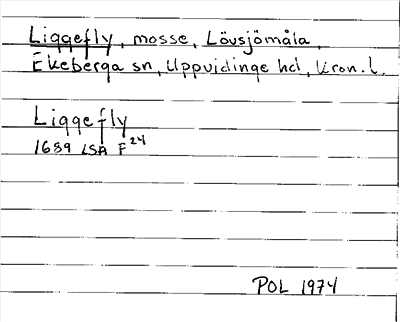 Liggefly, mosse, Lövsjömåla,
Ekeberga sn, Uppvidinge hd, Kron. l.
Liggefly
1689 LSA F24
POL 1974